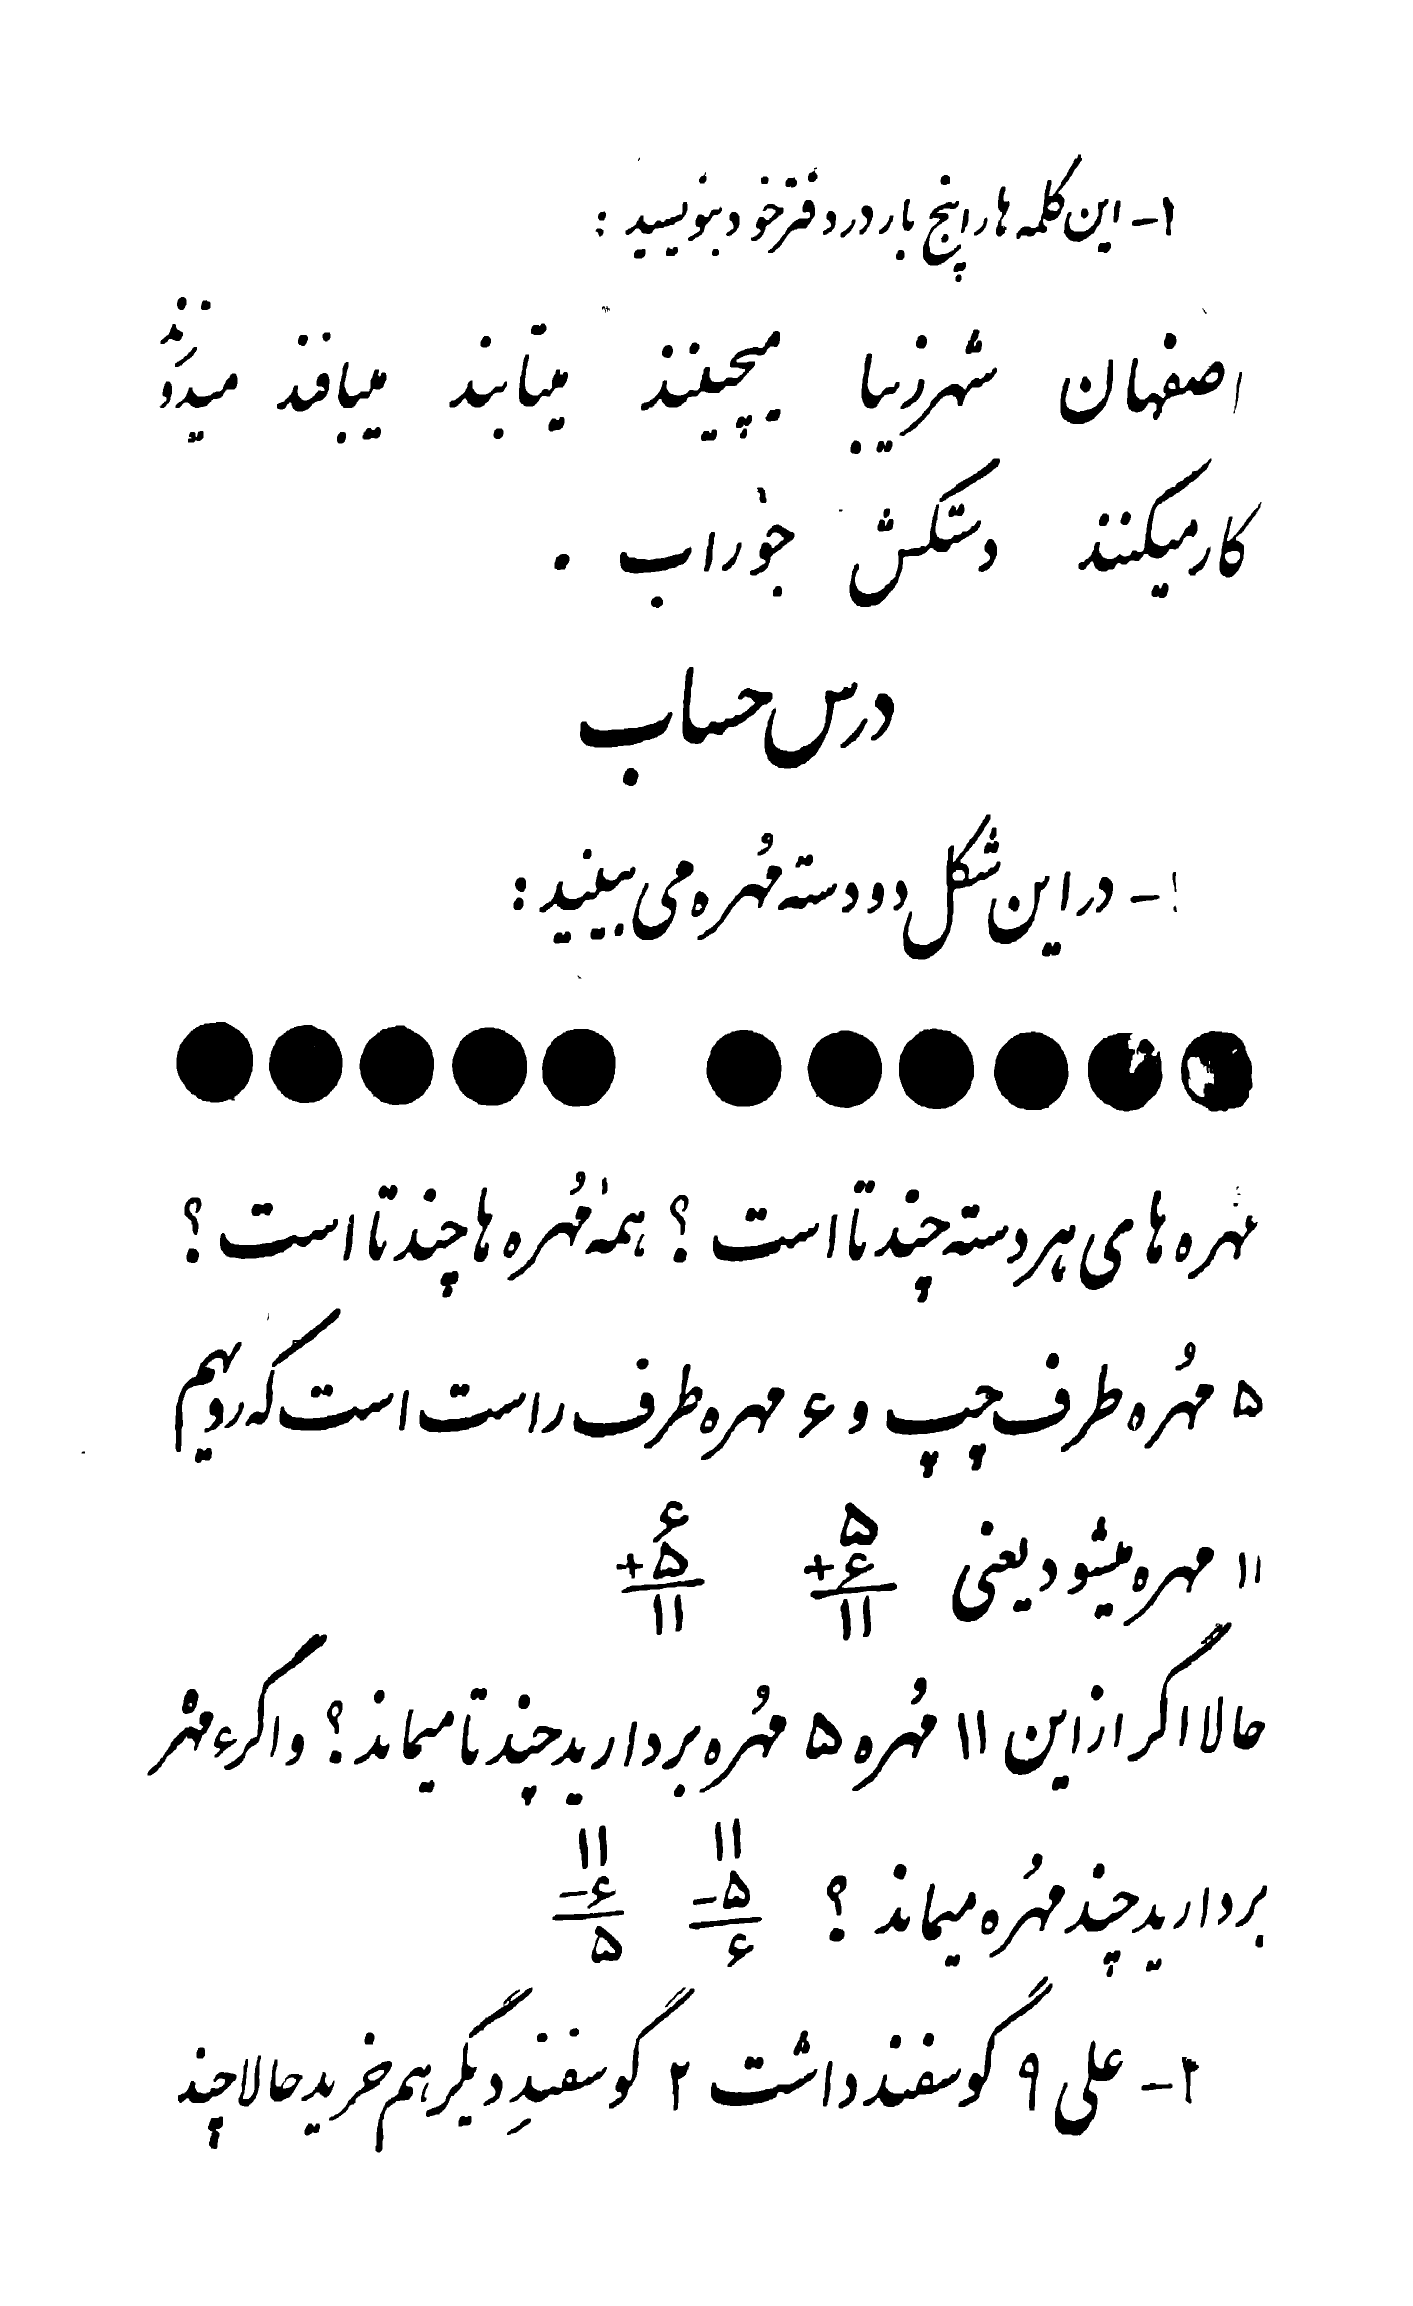 ۲- این کلمه ها را پنج بار در دفتر خود بنویسید :
اصفهان شهر زیبا میچینند میتابند میبافند میدوزند
کار میکنند دستکش جوراب .
درس حساب
۱- در این شکل دو دسته مُهره می بینید :
مهره های هر دسته چند تا است ؟ همهٔ مُهره ها چند تا است ؟
۵ مُهره طرف چپ و ۶ مهره طرف راست است که رویهم
۱۱ مهره میشود یعنی ۵ + ۶ ۱۱ ۶ + ۵ ۱۱
حالا اگر از این ۱۱ مُهره ۵ مُهره بردارید چند تا میماند ؟ و اگر ۶ مهره
بردارید چند مُهره میماند ؟ ۱۱ - ۵ ۶ ۱۱ - ۶ ۵
۲- علی ۹ گوسفند داشت ۲ گوسفندِ دیگر هم خرید حالا چند